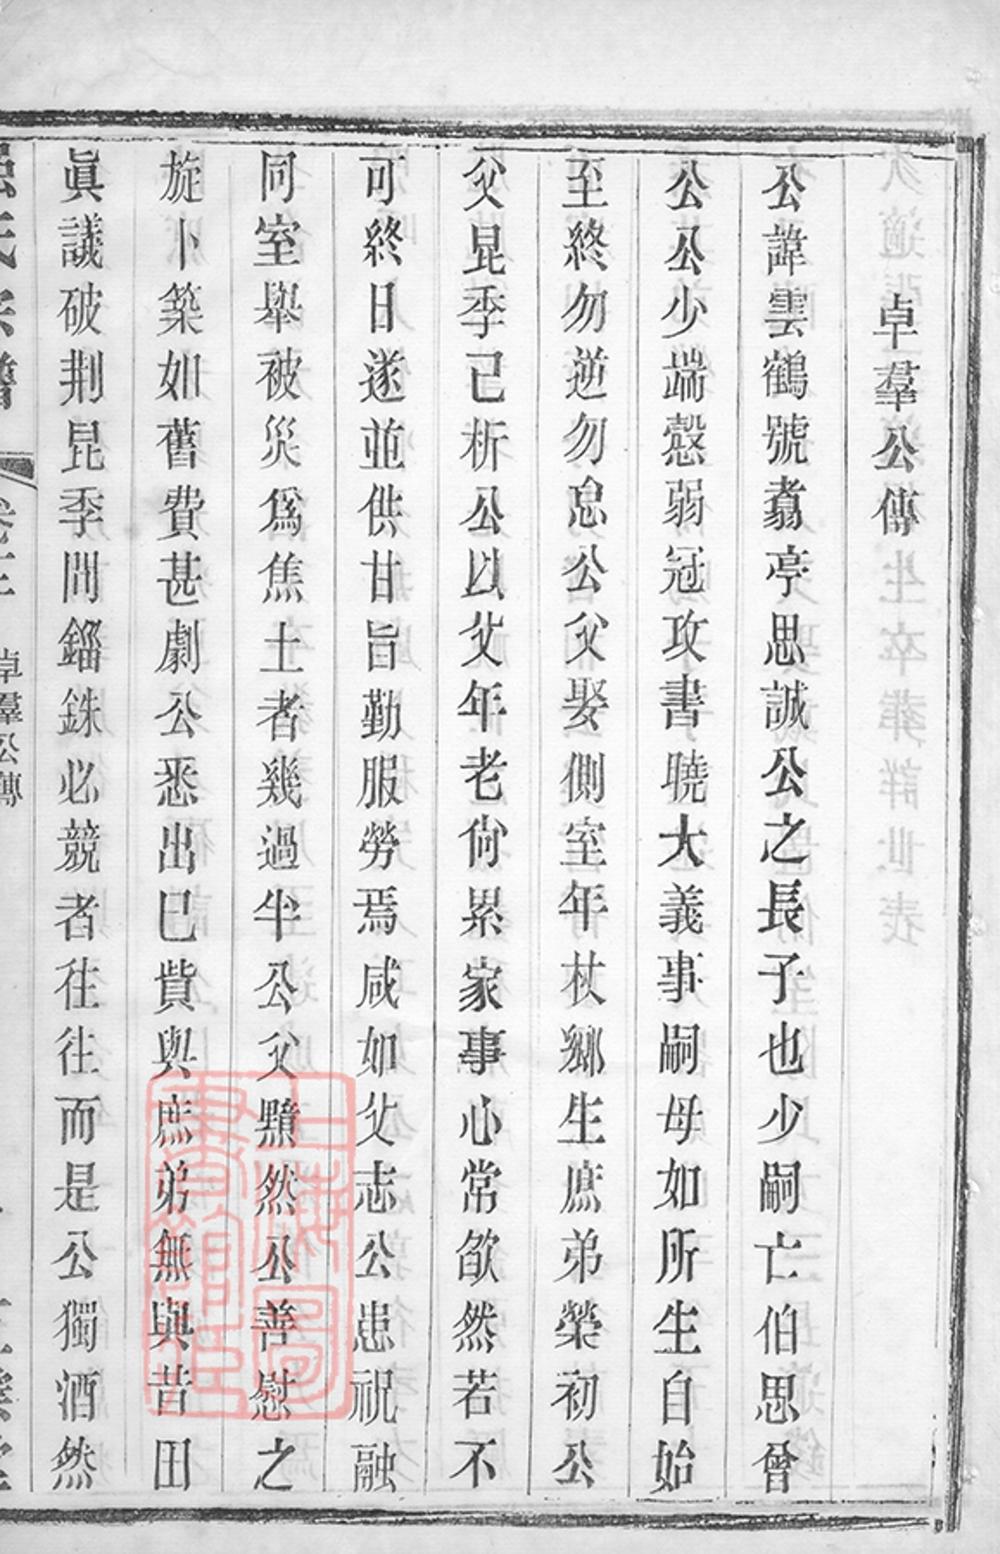 卓羣公傳
公諱雲鶴號翥亭思誠公之長子也少嗣亡伯思曾
公公少端慤弱冠攻書曉大義事嗣母如所生自始
至終勿逆勿怠公父娶側室年杖鄉生庶弟榮初公
父昆季已析公以父年老尙累家事心常欿然若不
可終日遂並供甘旨勤服勞焉咸如父志公患祝融
同室舉被災爲焦土者幾過半公父黯然公善慰之
旋卜築如舊費甚劇公悉出已貲與庶弟無與昔田
眞議破荆昆季間錙銖必競者往往而是公獨洒然
氏宗譜
卓羣公傳
上海圖書館藏